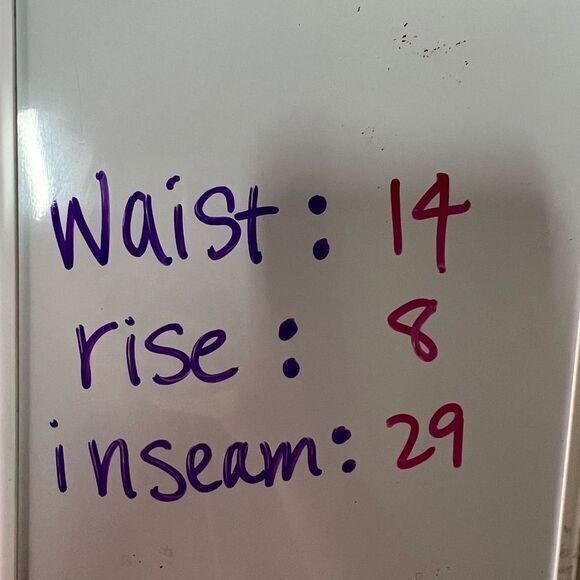 Waist: 14
rise: 8
inseam: 29